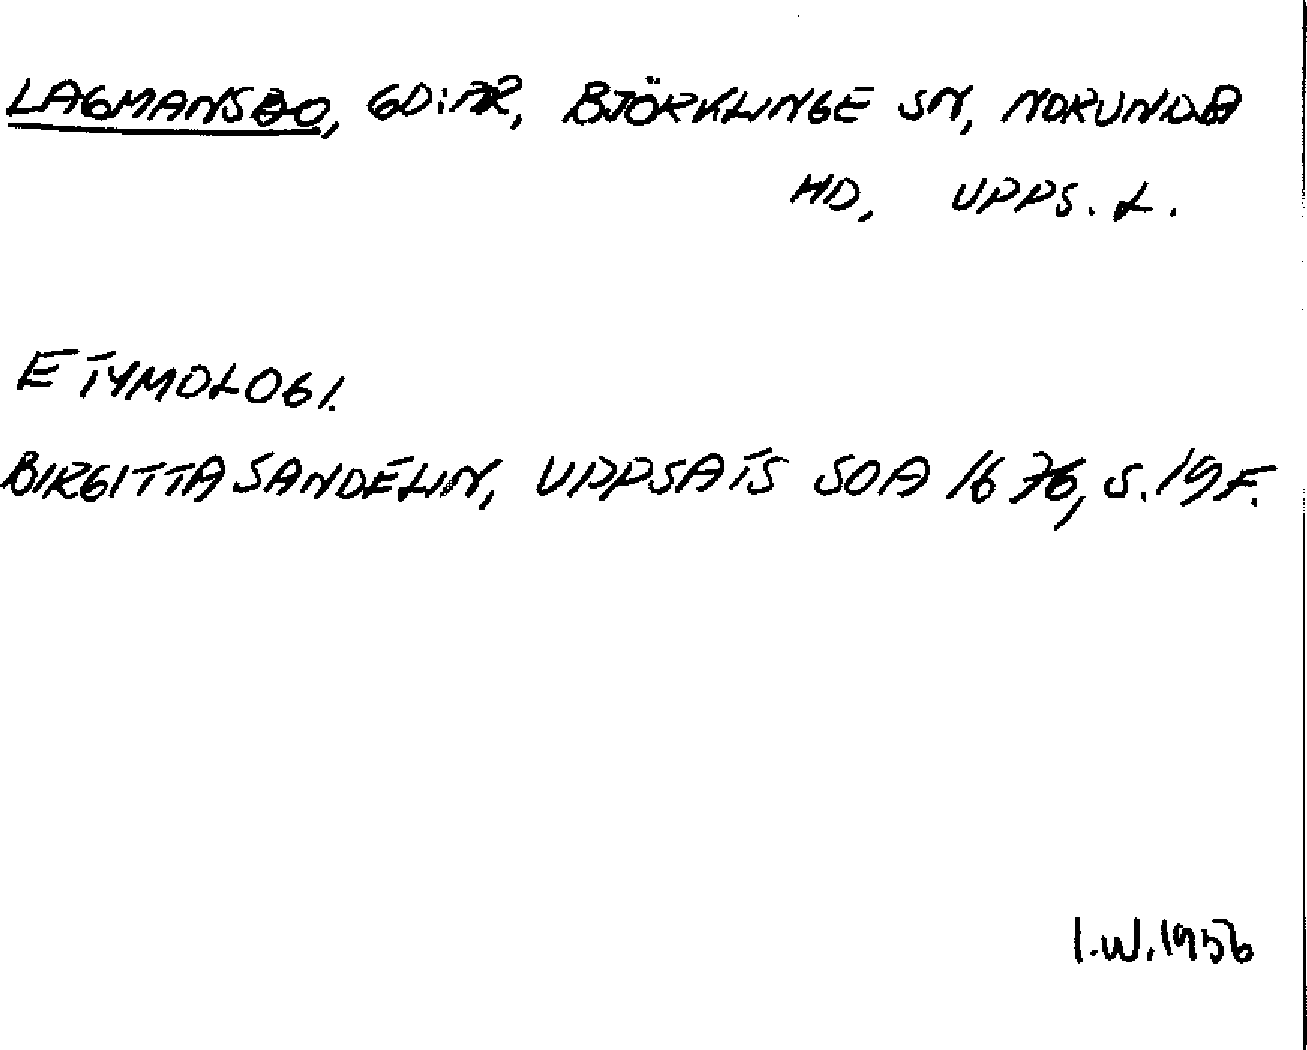 LAGMANSBO, GD:AR, BJÖRKLINGE SN, NORUNDA
HD, UPPS. L.
ETYMOLOGI.
BIRGITTA SANDELIN, UPPSATS SOA 1676, S. 19 F.
I.W. 1956